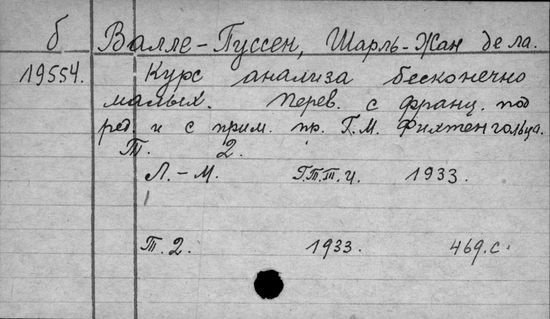 б Валле-Пуссен, Шарль-Жан де ла.
19554. Курс анализа бесконечно
малых. Перев. с франц. под
ред. и с прим. пр. Г.М. Фихтенгольца.
Т. 2.
Л.-М. Г.Т.Т.И. 1933.
Т. 2. 1933. 469.с.